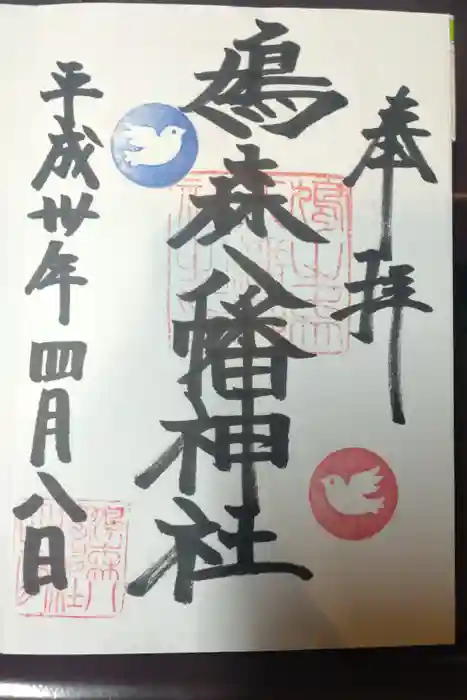 奉拝
鳩森八幡神社
平成卅年四月八日